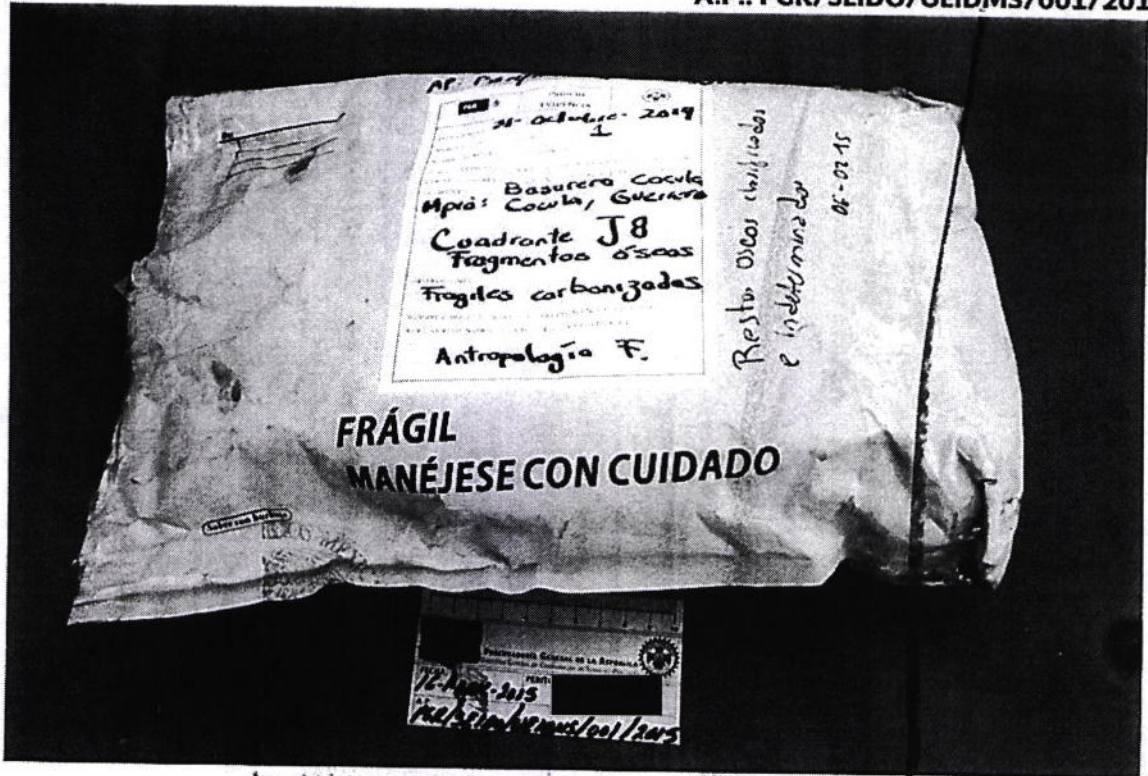 A.P.: PGR/SEIDO/UEIDMS/001/201
AP:
PGR
EVIDENCIA
Octubre - 2014
1
Basurero Cocula
Mpio: Cocula, Guerrero
Cuadrante J8
Fragmentos óseos
Fragiles carbonizados
Antropología F.
Restos óseos clasificados
e indeterminados
06-02 15
FRÁGIL
MANÉJESE CON CUIDADO
Sobre con burbuja
PROCURADURÍA GENERAL DE LA REPÚBLICA
PERITO
-2015
PGR/SEIDO/UEIDMS/001/2015